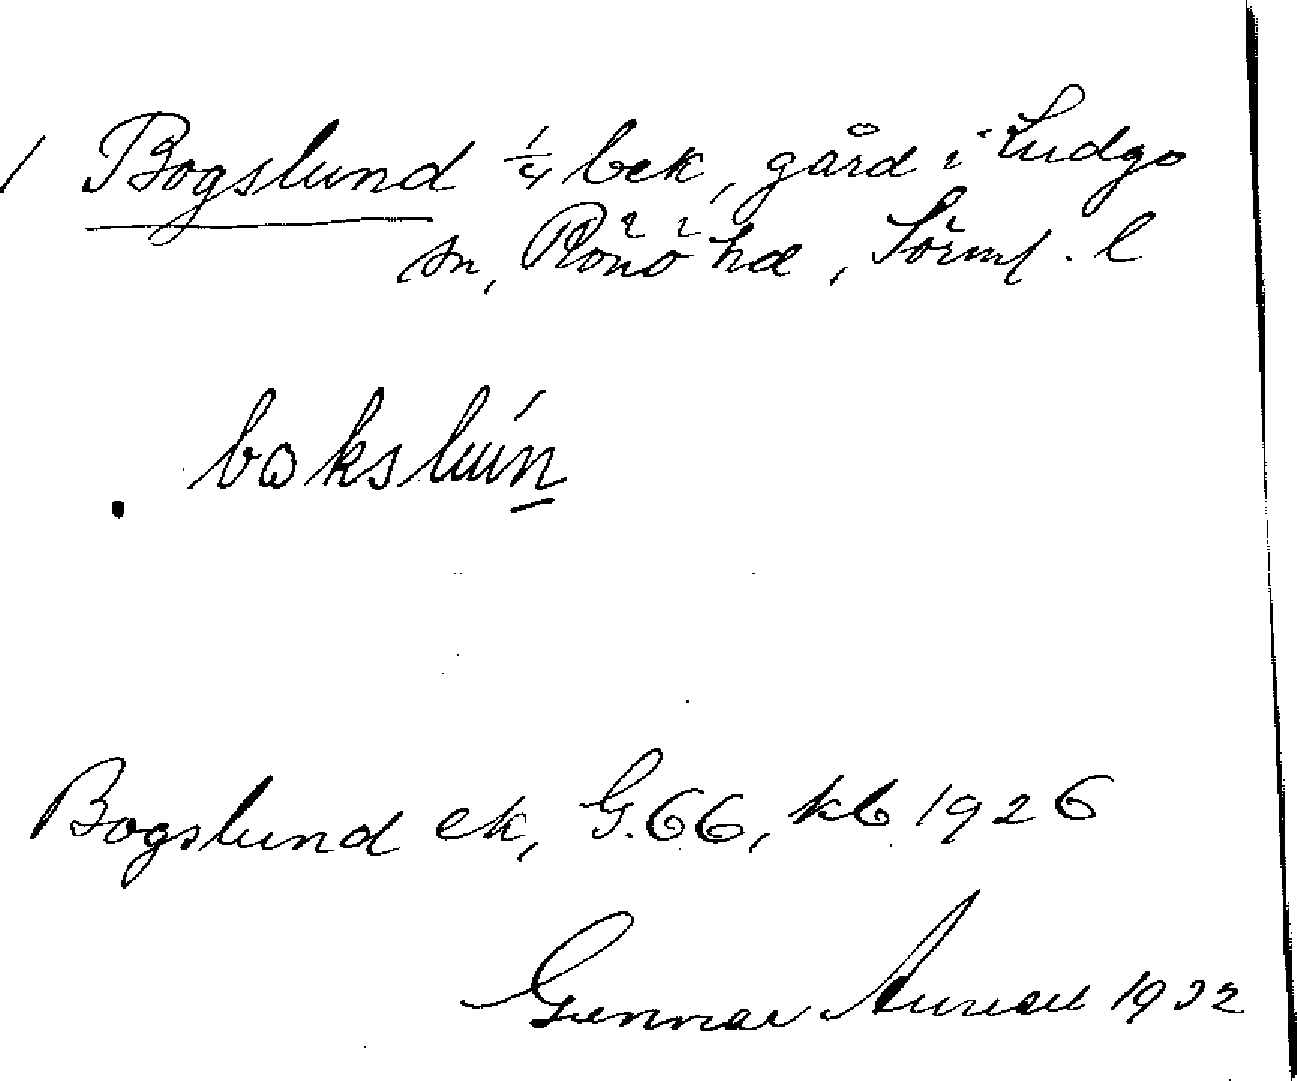 / Bogslund 1/4 bek, gård i Ludgo
sn, Rönö hd, Sörml. l
bokslún
Bogslund ek, G.66, kb 1926
Gunnar 1932